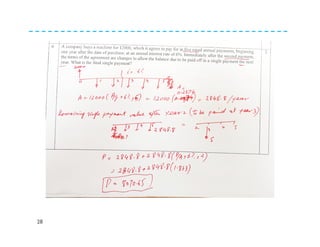 A company buys a machine for 12000, which it agrees to pay for in five equal annual payments, beginning
one year after the date of purchase, at an annual interest rate of 6%. Immediately after the second payment,
the terms of the agreement are changes to allow the balance due to be paid off in a single payment the next
year. What is the final single payment?
i = 6%
A = 12000 = 12000 = 2848.8 / year
Remaining single payment value after year 2 (to be paid at year 3)
2848.8
P = 2848.8 + 2848.8 (P/A, 6%, 2)
= 2848.8 + 2848.8 (1.833)
P = 8070.65
28